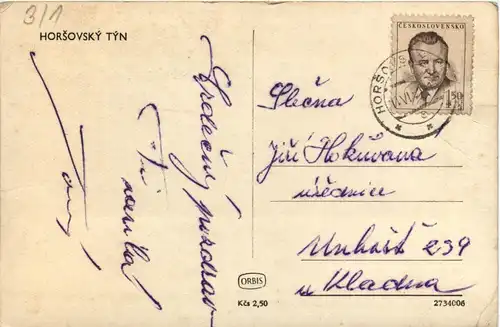 3/1
HORŠOVSKÝ TÝN
ČESKOSLOVENSKO
1,50
HORŠOV
Srdečný pozdrav
Slečna
Jiří Hokůvana
úřednice
Unhošť 239
u Kladna
ORBIS
Kčs 2,50
2734006